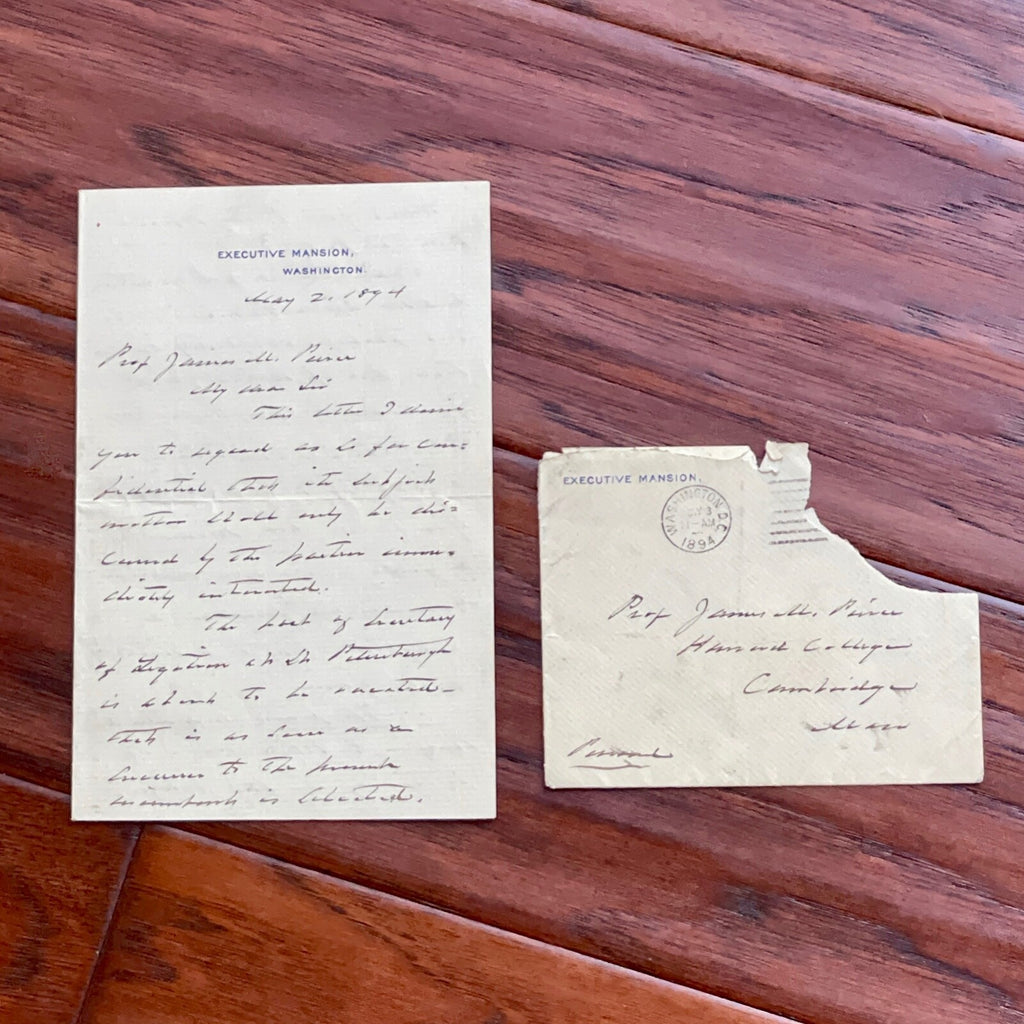 EXECUTIVE MANSION,
WASHINGTON.
May 2. 1894
Prof James M. Peirce
My dear Sir
This letter I desire
you to regard as so far con-
fidential that its subject
matter shall only be dis-
cussed by the parties imme-
diately interested.
The post of Secretary
of Legation at St Petersburgh
is about to be vacated-
that is as soon as a
successor to the present
incumbent is selected.
EXECUTIVE MANSION,
WASHINGTON, D.C.
AM
1894
Prof James M. Peirce
Harvard College
Cambridge
Mass
Personal